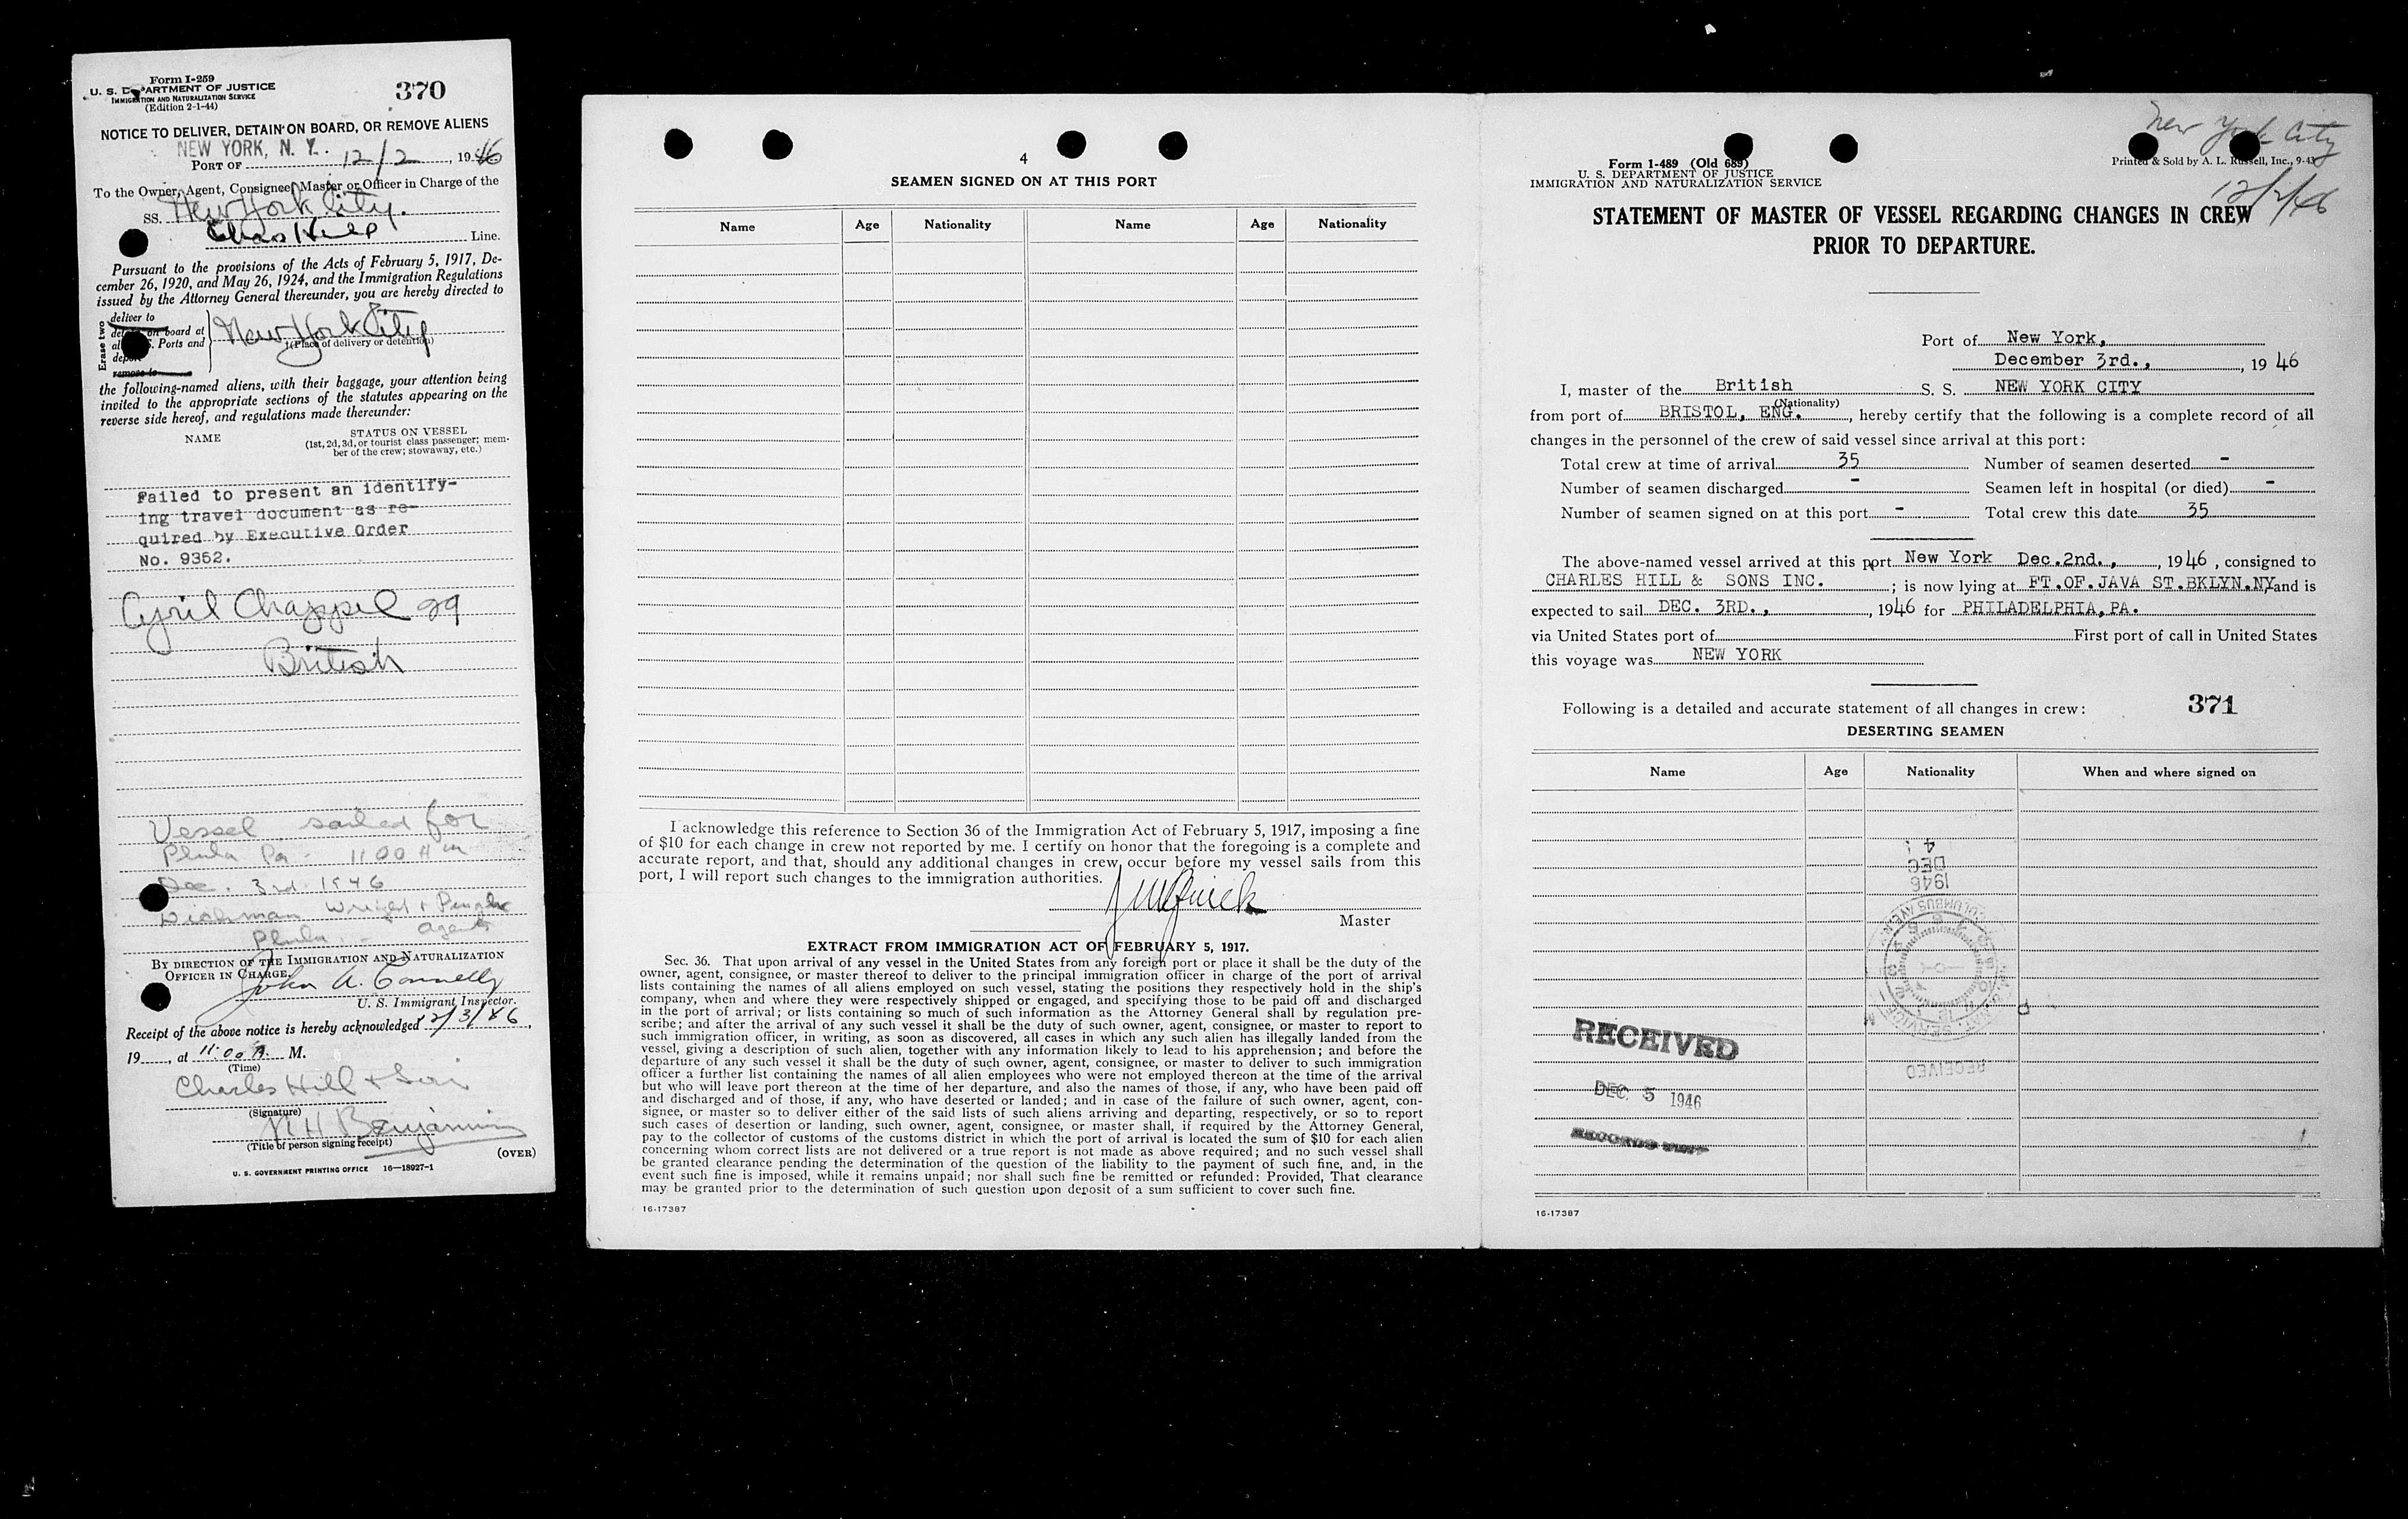 Form I-259
U. S. DEPARTMENT OF JUSTICE
IMMIGRATION AND NATURALIZATION SERVICE
(Edition 2-1-44)
370
NOTICE TO DELIVER, DETAIN ON BOARD, OR REMOVE ALIENS
NEW YORK, N. Y.
PORT OF 12/2, 1946
To the Owner, Agent, Consignee, Master or Officer in Charge of the
SS. New York City.
Chas Hill Line.
Pursuant to the provisions of the Acts of February 5, 1917, De-
cember 26, 1920, and May 26, 1924, and the Immigration Regulations
issued by the Attorney General thereunder, you are hereby directed to
Erase two
deliver to
on board at
Ports and
remove to
New York City
(Place of delivery or detention)
the following-named aliens, with their baggage, your attention being
invited to the appropriate sections of the statutes appearing on the
reverse side hereof, and regulations made thereunder:
NAME
STATUS ON VESSEL
(1st, 2d, 3d, or tourist class passenger; mem-
ber of the crew; stowaway, etc.)
Failed to present an identify-
ing travel document as re-
quired by Executive Order
No. 9352.
Cyril Chappel 29
British
Vessel sailed for
Phila Pa - 11 00 A m
Dec. 3rd 1946
Wright +
Phila. - Agents
BY DIRECTION OF THE IMMIGRATION AND NATURALIZATION
OFFICER IN CHARGE.
John A. Connelly
U. S. Immigrant Inspector.
Receipt of the above notice is hereby acknowledged 12/3/46,
19, at 11:00 A. M.
(Time)
Charles Hill + Son
(Signature)
N H Benjamin
(Title of person signing receipt)
(OVER)
U. S. GOVERNMENT PRINTING OFFICE 16—18927-1
4
SEAMEN SIGNED ON AT THIS PORT
Name Age Nationality Name Age Nationality
I acknowledge this reference to Section 36 of the Immigration Act of February 5, 1917, imposing a fine
of $10 for each change in crew not reported by me. I certify on honor that the foregoing is a complete and
accurate report, and that, should any additional changes in crew occur before my vessel sails from this
port, I will report such changes to the immigration authorities.
Master
EXTRACT FROM IMMIGRATION ACT OF FEBRUARY 5, 1917.
Sec. 36. That upon arrival of any vessel in the United States from any foreign port or place it shall be the duty of the
owner, agent, consignee, or master thereof to deliver to the principal immigration officer in charge of the port of arrival
lists containing the names of all aliens employed on such vessel, stating the positions they respectively hold in the ship's
company, when and where they were respectively shipped or engaged, and specifying those to be paid off and discharged
in the port of arrival; or lists containing so much of such information as the Attorney General shall by regulation pre-
scribe; and after the arrival of any such vessel it shall be the duty of such owner, agent, consignee, or master to report to
such immigration officer, in writing, as soon as discovered, all cases in which any such alien has illegally landed from the
vessel, giving a description of such alien, together with any information likely to lead to his apprehension; and before the
departure of any such vessel it shall be the duty of such owner, agent, consignee, or master to deliver to such immigration
officer a further list containing the names of all alien employees who were not employed thereon at the time of the arrival
but who will leave port thereon at the time of her departure, and also the names of those, if any, who have been paid off
and discharged and of those, if any, who have deserted or landed; and in case of the failure of such owner, agent, con-
signee, or master so to deliver either of the said lists of such aliens arriving and departing, respectively, or so to report
such cases of desertion or landing, such owner, agent, consignee, or master shall, if required by the Attorney General,
pay to the collector of customs of the customs district in which the port of arrival is located the sum of $10 for each alien
concerning whom correct lists are not delivered or a true report is not made as above required; and no such vessel shall
be granted clearance pending the determination of the question of the liability to the payment of such fine, and, in the
event such fine is imposed, while it remains unpaid; nor shall such fine be remitted or refunded: Provided, That clearance
may be granted prior to the determination of such question upon deposit of a sum sufficient to cover such fine.
16-17387
New York City
12/2/46
Form 1-489 (Old 689)
U. S. DEPARTMENT OF JUSTICE
IMMIGRATION AND NATURALIZATION SERVICE
Printed & Sold by A. L. Russell, Inc., 9-43
STATEMENT OF MASTER OF VESSEL REGARDING CHANGES IN CREW
PRIOR TO DEPARTURE.
Port of New York,
December 3rd., , 1946
I, master of the British S. S. NEW YORK CITY
(Nationality)
from port of BRISTOL, ENG. , hereby certify that the following is a complete record of all
changes in the personnel of the crew of said vessel since arrival at this port:
Total crew at time of arrival 35 Number of seamen deserted -
Number of seamen discharged - Seamen left in hospital (or died) -
Number of seamen signed on at this port - Total crew this date 35
The above-named vessel arrived at this port New York Dec.2nd., , 1946, consigned to
CHARLES HILL & SONS INC. ; is now lying at FT.OF.JAVA ST.BKLYN.NY and is
expected to sail DEC. 3RD., , 1946 for PHILADELPHIA,PA.
via United States port of First port of call in United States
this voyage was NEW YORK
Following is a detailed and accurate statement of all changes in crew:
371
DESERTING SEAMEN
Name Age Nationality When and where signed on
4
DEC
1946
COLUMBUS AVE
RECEIVED
RECEIVED
DEC 5 1946
RECORDS UNIT
16-17387